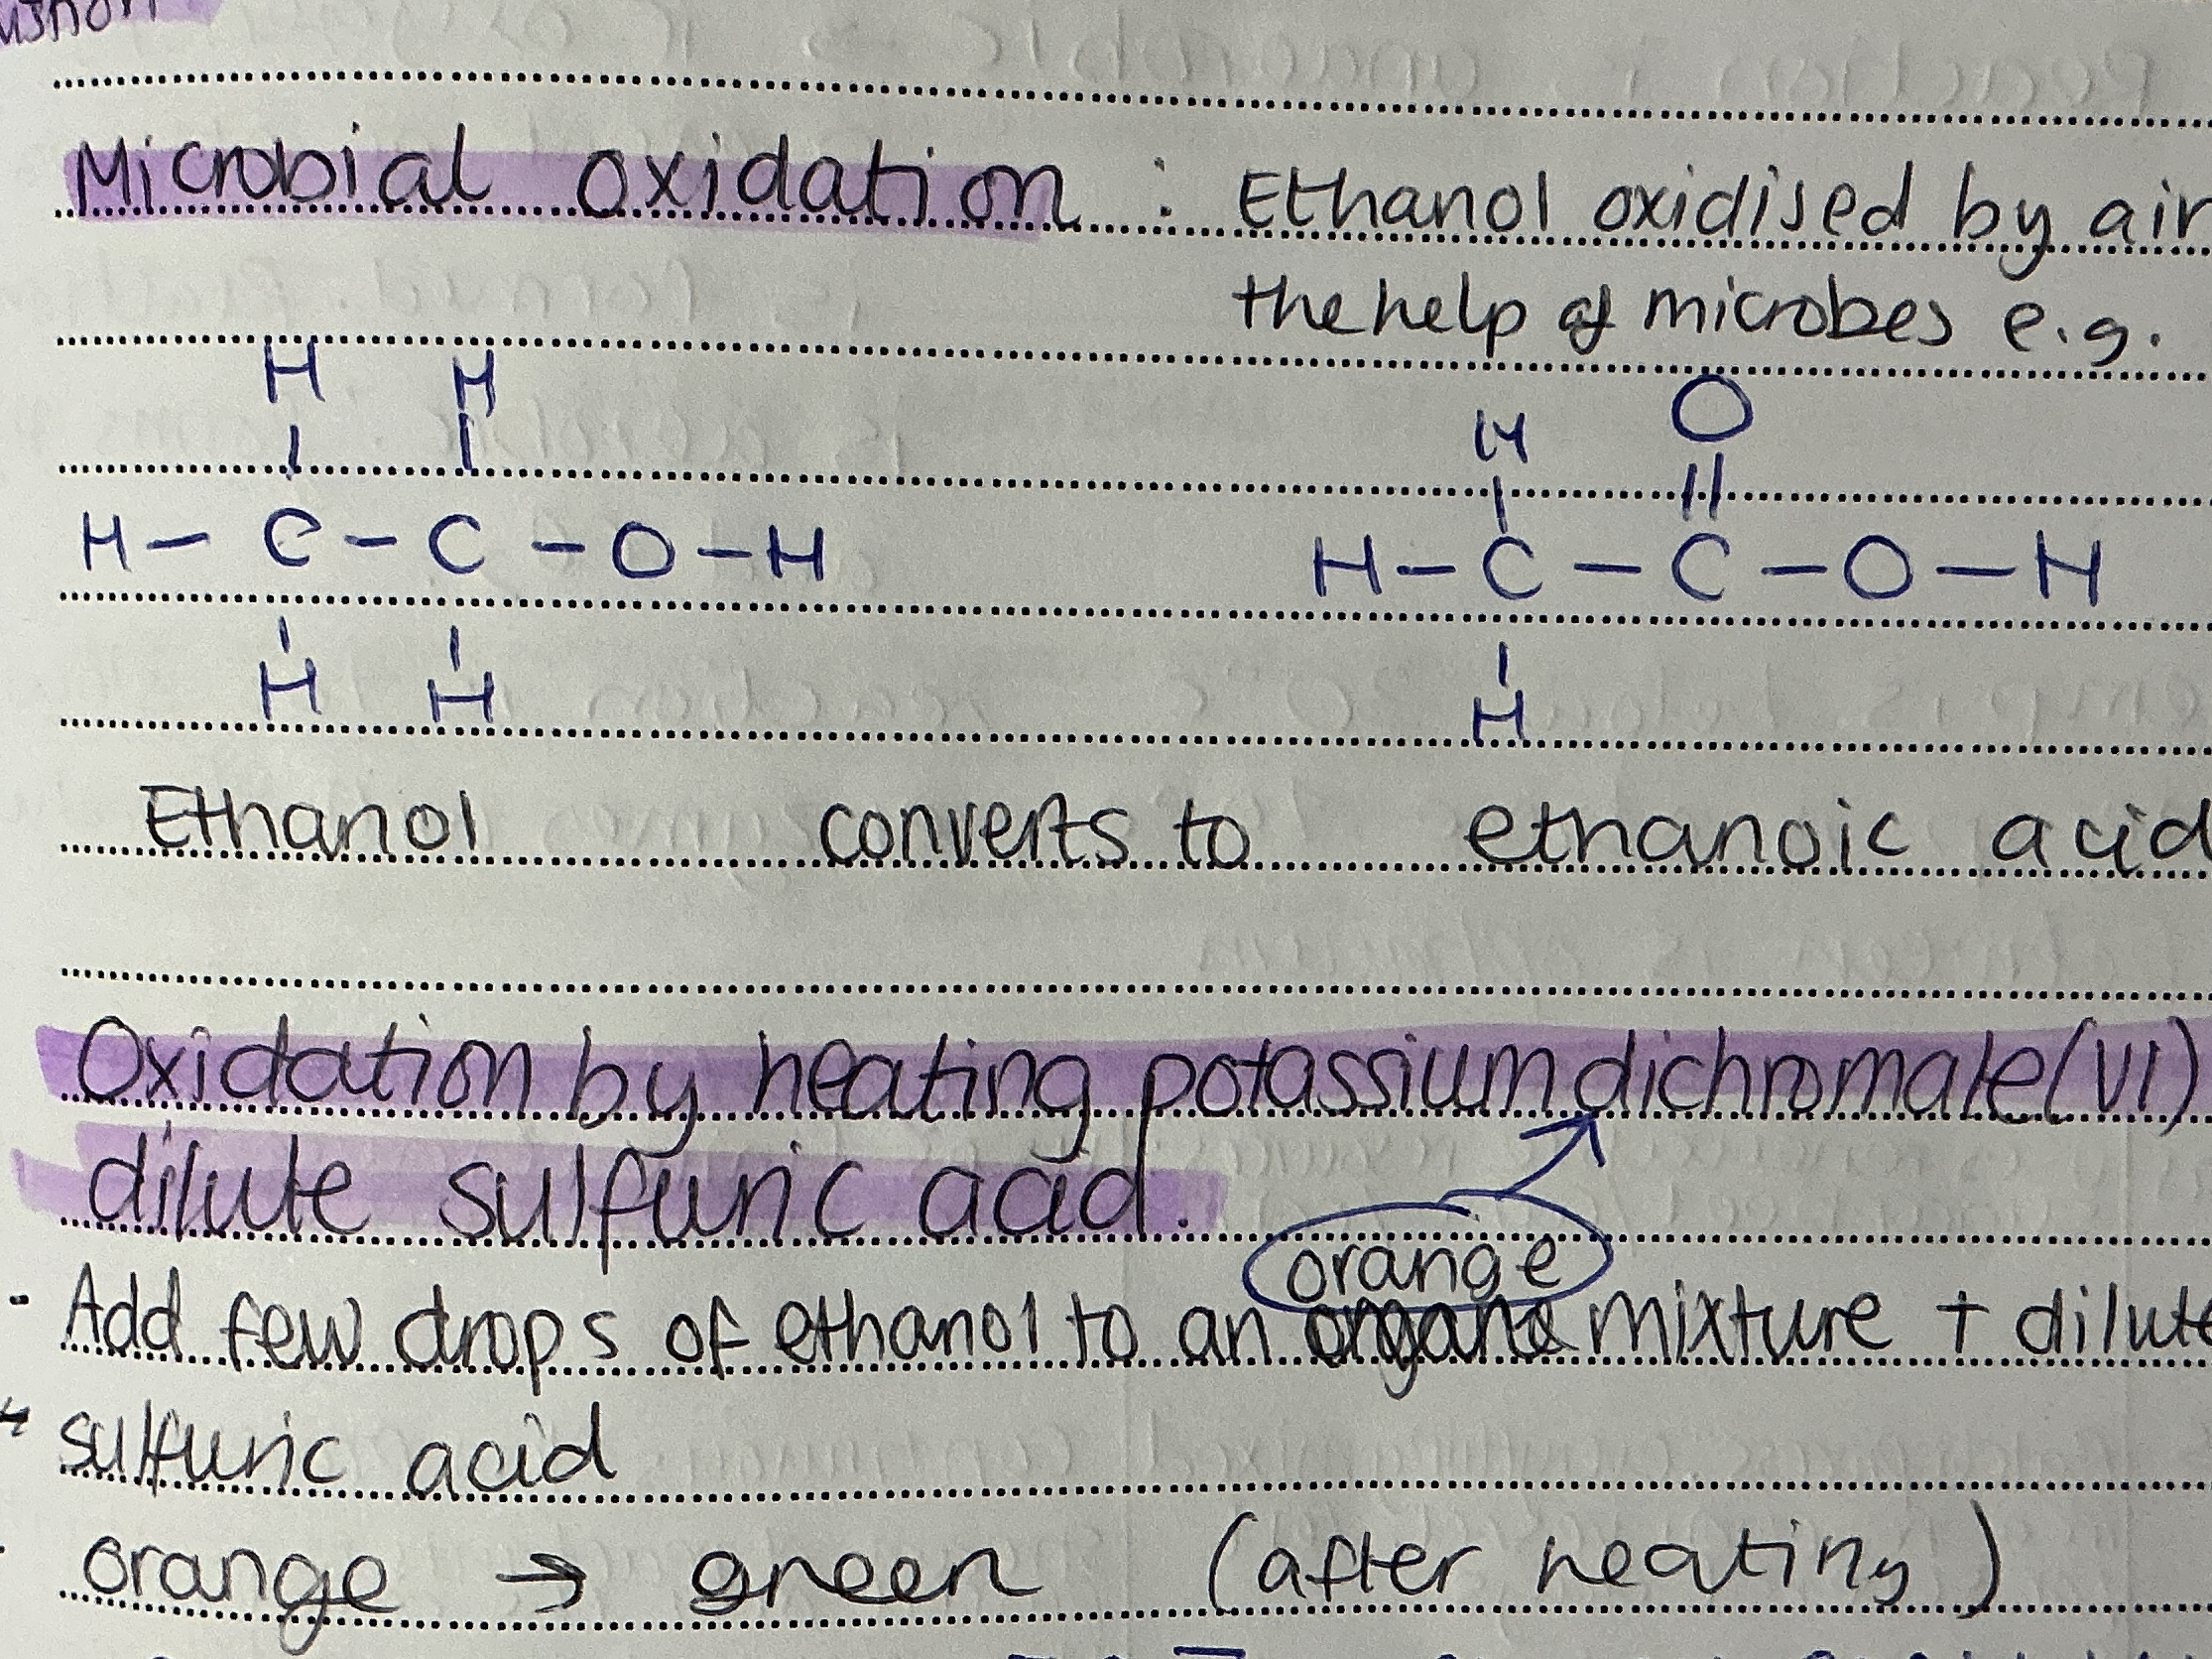 Microbial oxidation : Ethanol oxidised by air
the help of microbes e.g.
H H
H O
H – C – C – O – H
H – C – C – O – H
H H
H
Ethanol converts to ethanoic acid
Oxidation by heating potassium dichromate(VI)
dilute sulfuric acid.
orange
- Add few drops of ethanol to an mixture + dilute
sulfuric acid
orange → green (after heating)